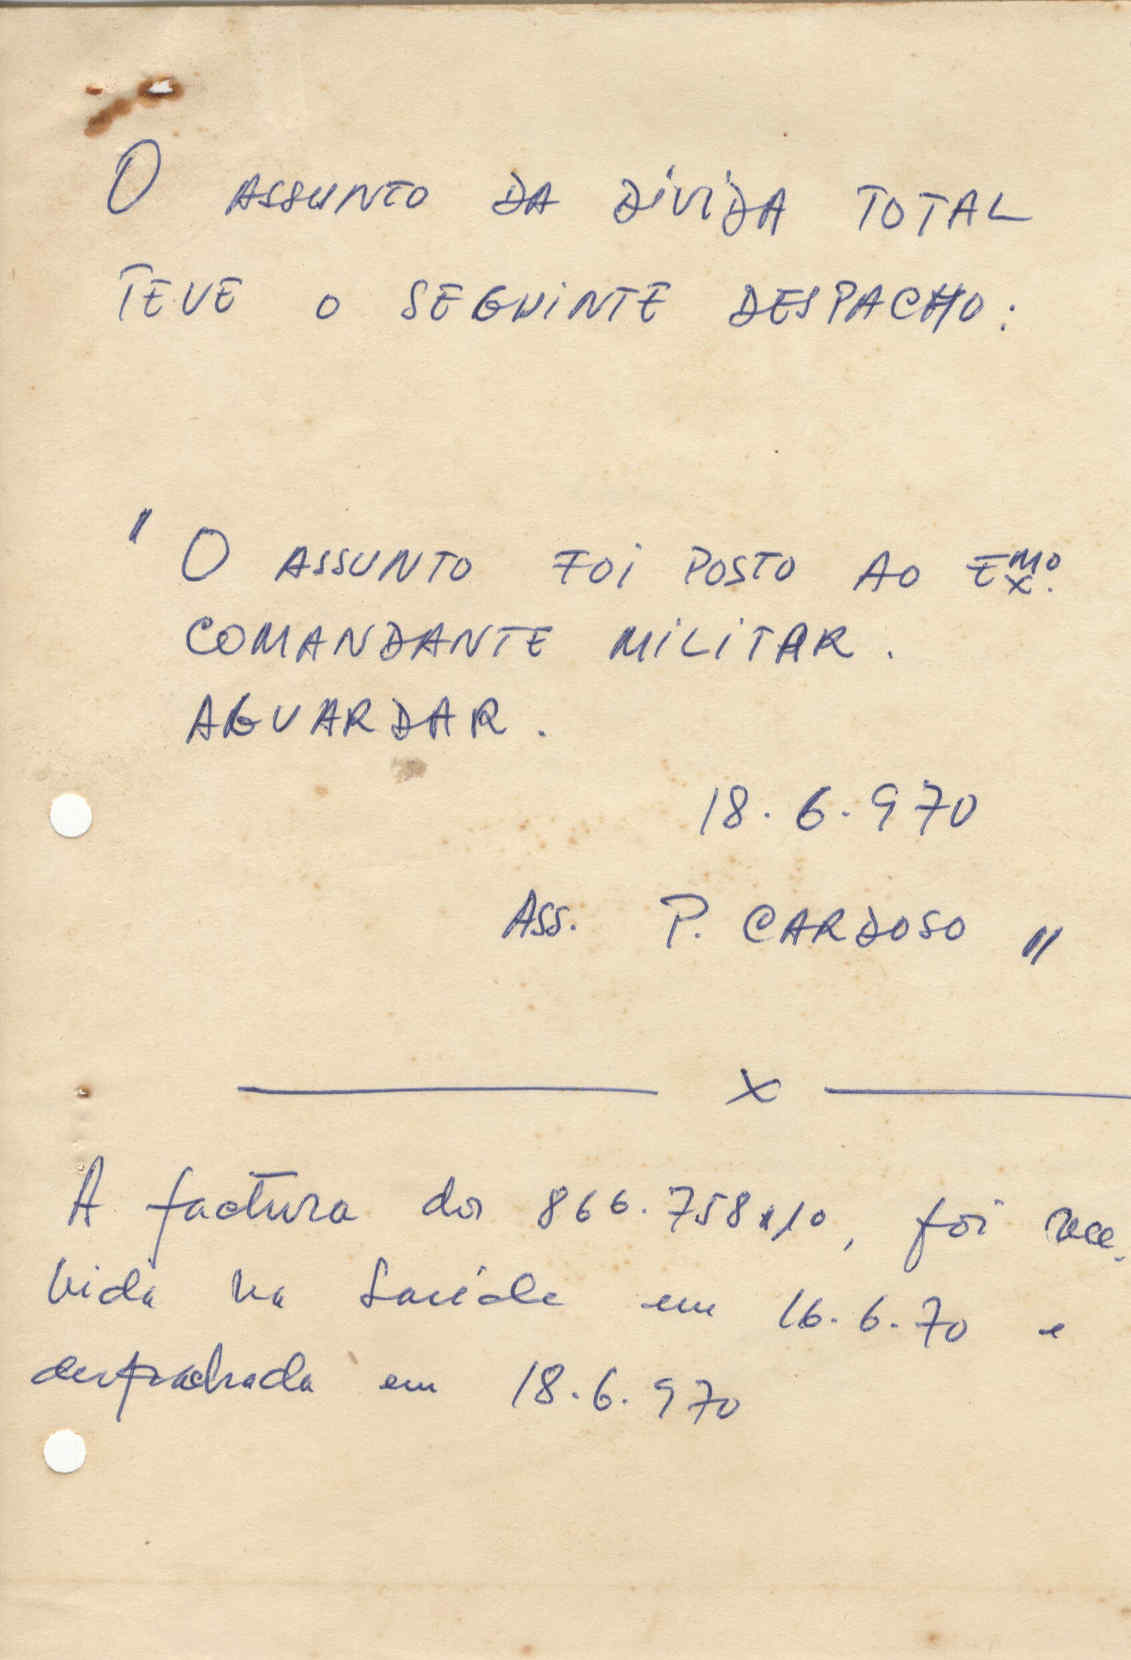 O ASSUNTO DA DÍVIDA TOTAL
TEVE O SEGUINTE DESPACHO:
" O ASSUNTO FOI POSTO AO EXMO.
COMANDANTE MILITAR.
AGUARDAR.
18.6.970
ASS. P. CARDOSO "
x
A factura dos 866.758$10, foi rece-
bida na Saúde em 16.6.70 e
despachada em 18.6.970